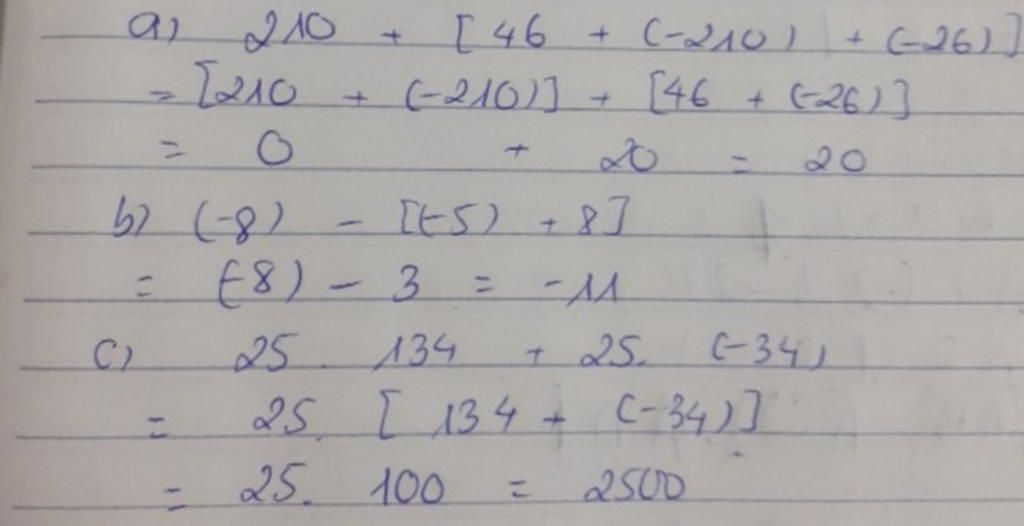 a) 210 + [46 + (-210) + (-26)]
= [210 + (-210)] + [46 + (-26)]
= 0 + 20 = 20
b) (-8) - [(-5) + 8]
= (-8) - 3 = -11
c) 25 . 134 + 25. (-34)
= 25. [134 + (-34)]
= 25. 100 = 2500